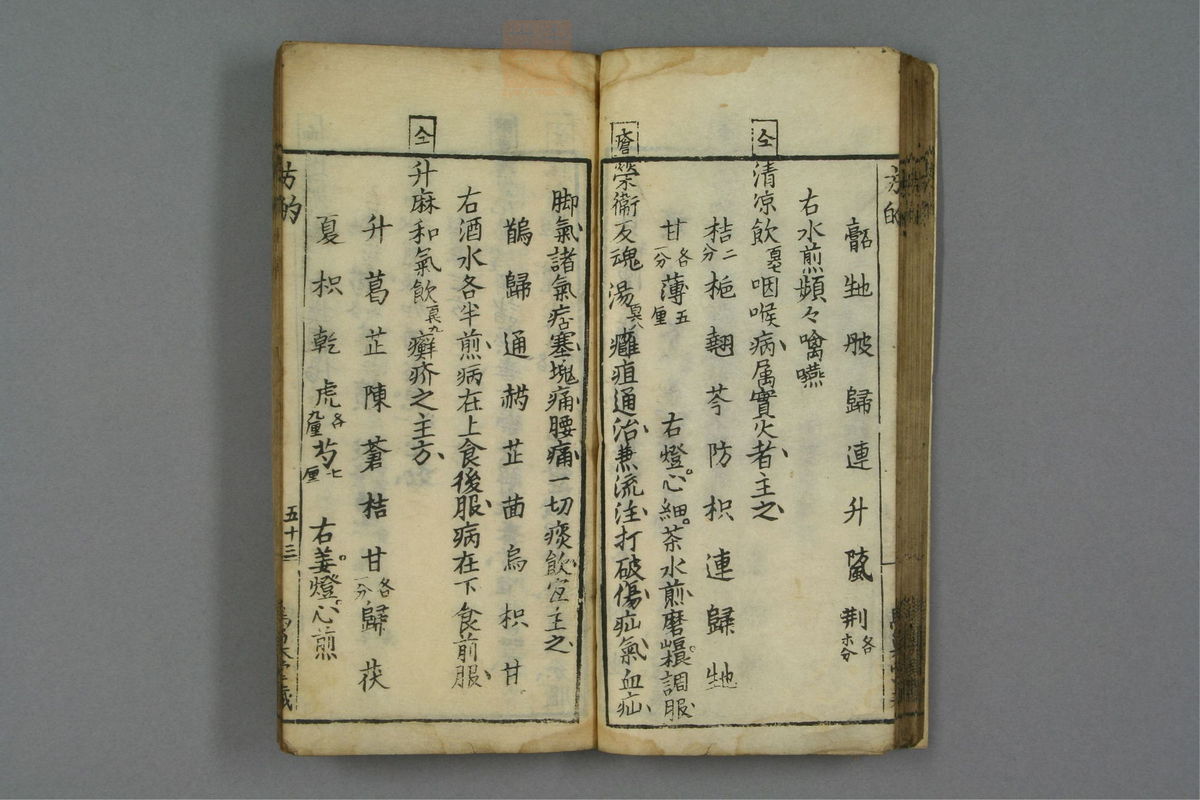 方的
歸 連 升 荆 各
右水煎頻々噙嚥
仝
清凉飲 咽喉病属實火者主之
桔 二分 栀 翹 芩 防 枳 連 歸 地
甘 各一分 薄 五厘 右燈心細茶水煎磨調服
瘡
榮衞反魂湯 癰疽通治兼流注打破傷疝氣血疝
脚氣諸氣痞塞塊痛腰痛一切痰飲宜主之
歸 通 芷 茴 烏 枳 甘
右酒水各半煎病在上食後服病在下食前服
仝
升麻和氣飲 癬疥之主方
升 葛 芷 陳 蒼 桔 甘 各一分 歸 茯
夏 枳 乾 虎 各九厘 芍 七厘 右姜燈心煎
方的
五十三